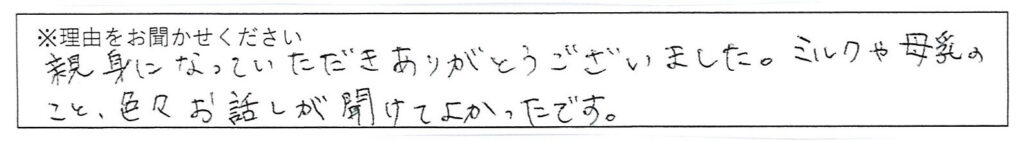 ※理由をお聞かせください
親身になっていただきありがとうございました。ミルクや母乳の
こと、色々お話しが聞けてよかったです。